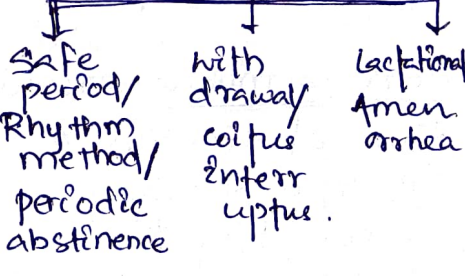 Safe
period/
Rhythm
method/
periodic
abstinence
with
draway/
coitus
interr
uptus.
Lactational
Amen
orrhea